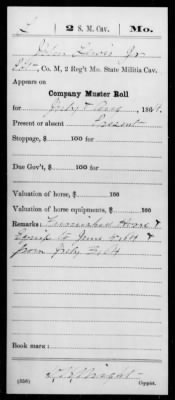 L | 2 S. M. Cav. | Mo.
John Lewis Jr
Co. M, 2 Reg't Mo. State Militia Cav.
Appears on
Company Muster Roll
for July & Aug, 1864.
Present or absent Present
Stoppage, $ 100 for
Due Gov't, $ 100 for
Valuation of horse, $ 100
Valuation of horse equipments, $ 100
Remarks: Furnished Horse &
Equip to June &
from July
Book mark:
(356) Copyist.